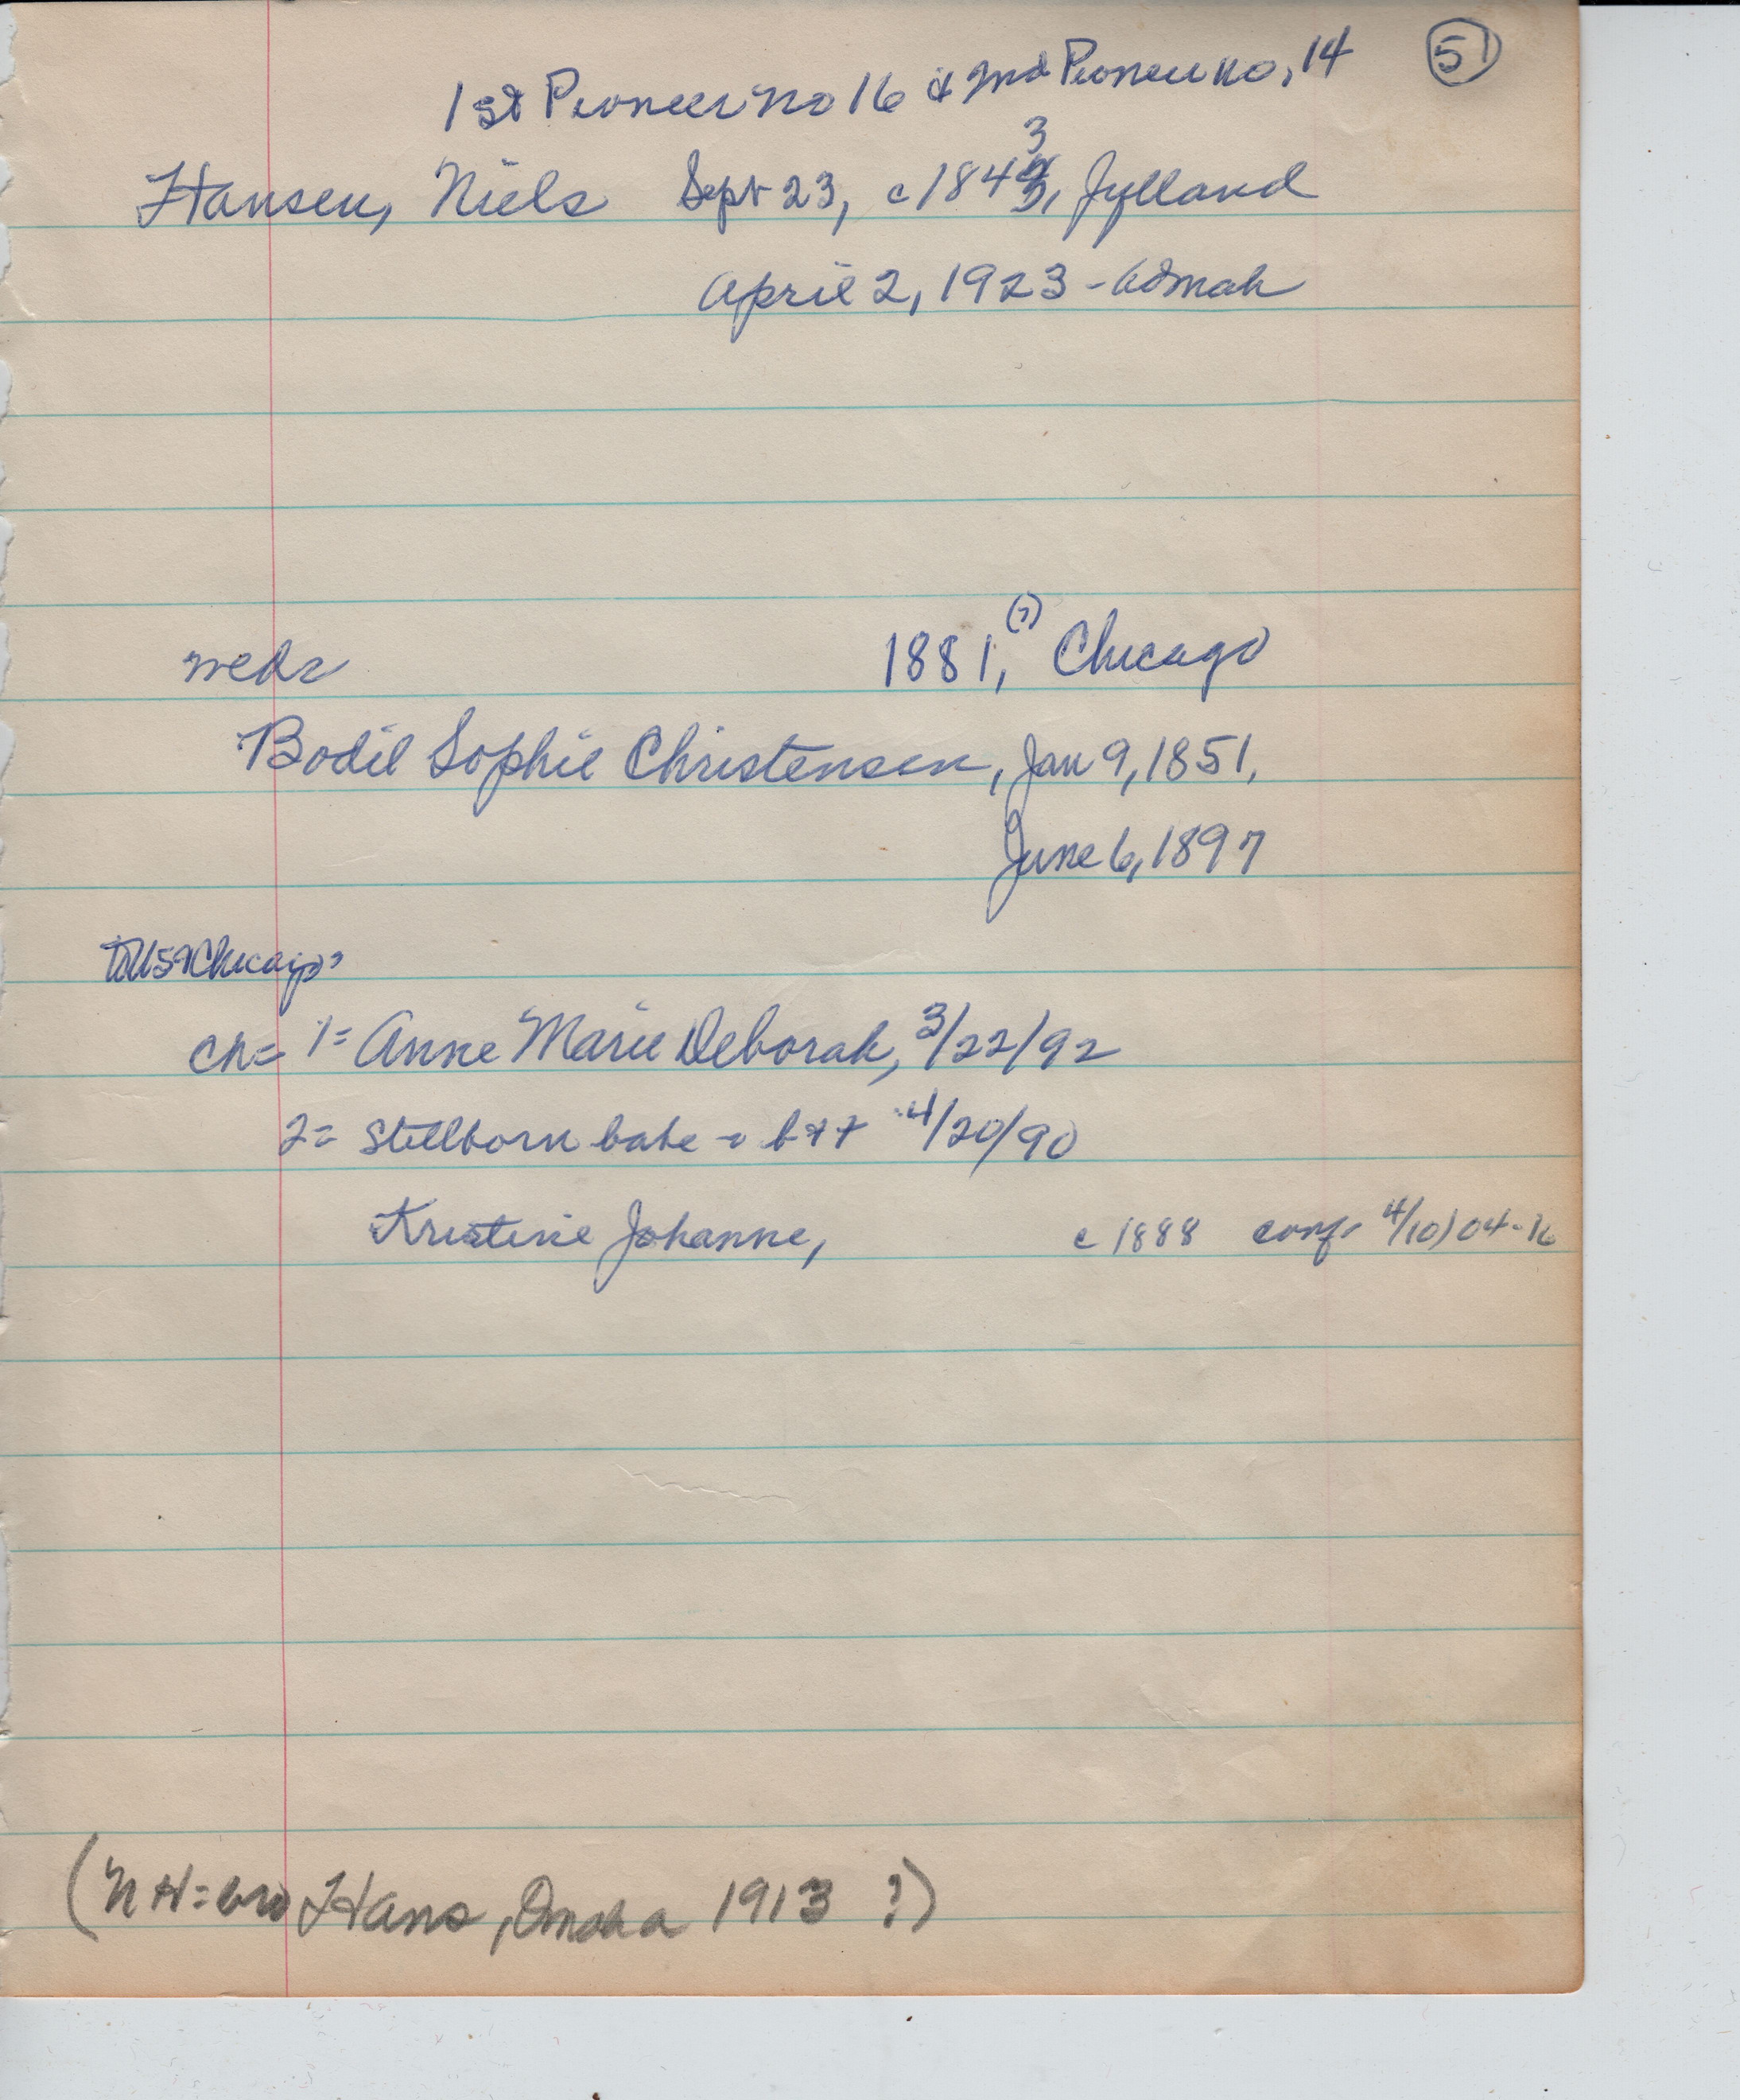 51
1st Pioneer no 16 & 2nd Pioneer no, 14
3
Hansen, Niels Sept 23, c 184, Jylland
April 2, 1923 - Admah
(?)
weds 1881, Chicago
Bodil Sophie Christensen, Jan 9, 1851,
June 6, 1897
Chicago
ch= 1= Anne Marie Deborah, 3/22/92
2= Stillborn babe = b++ 4/20/90
Kristine Johanne, c 1888 conf- 4/10/04-16
(NH=bro Hans, Omaha 1913 ?)